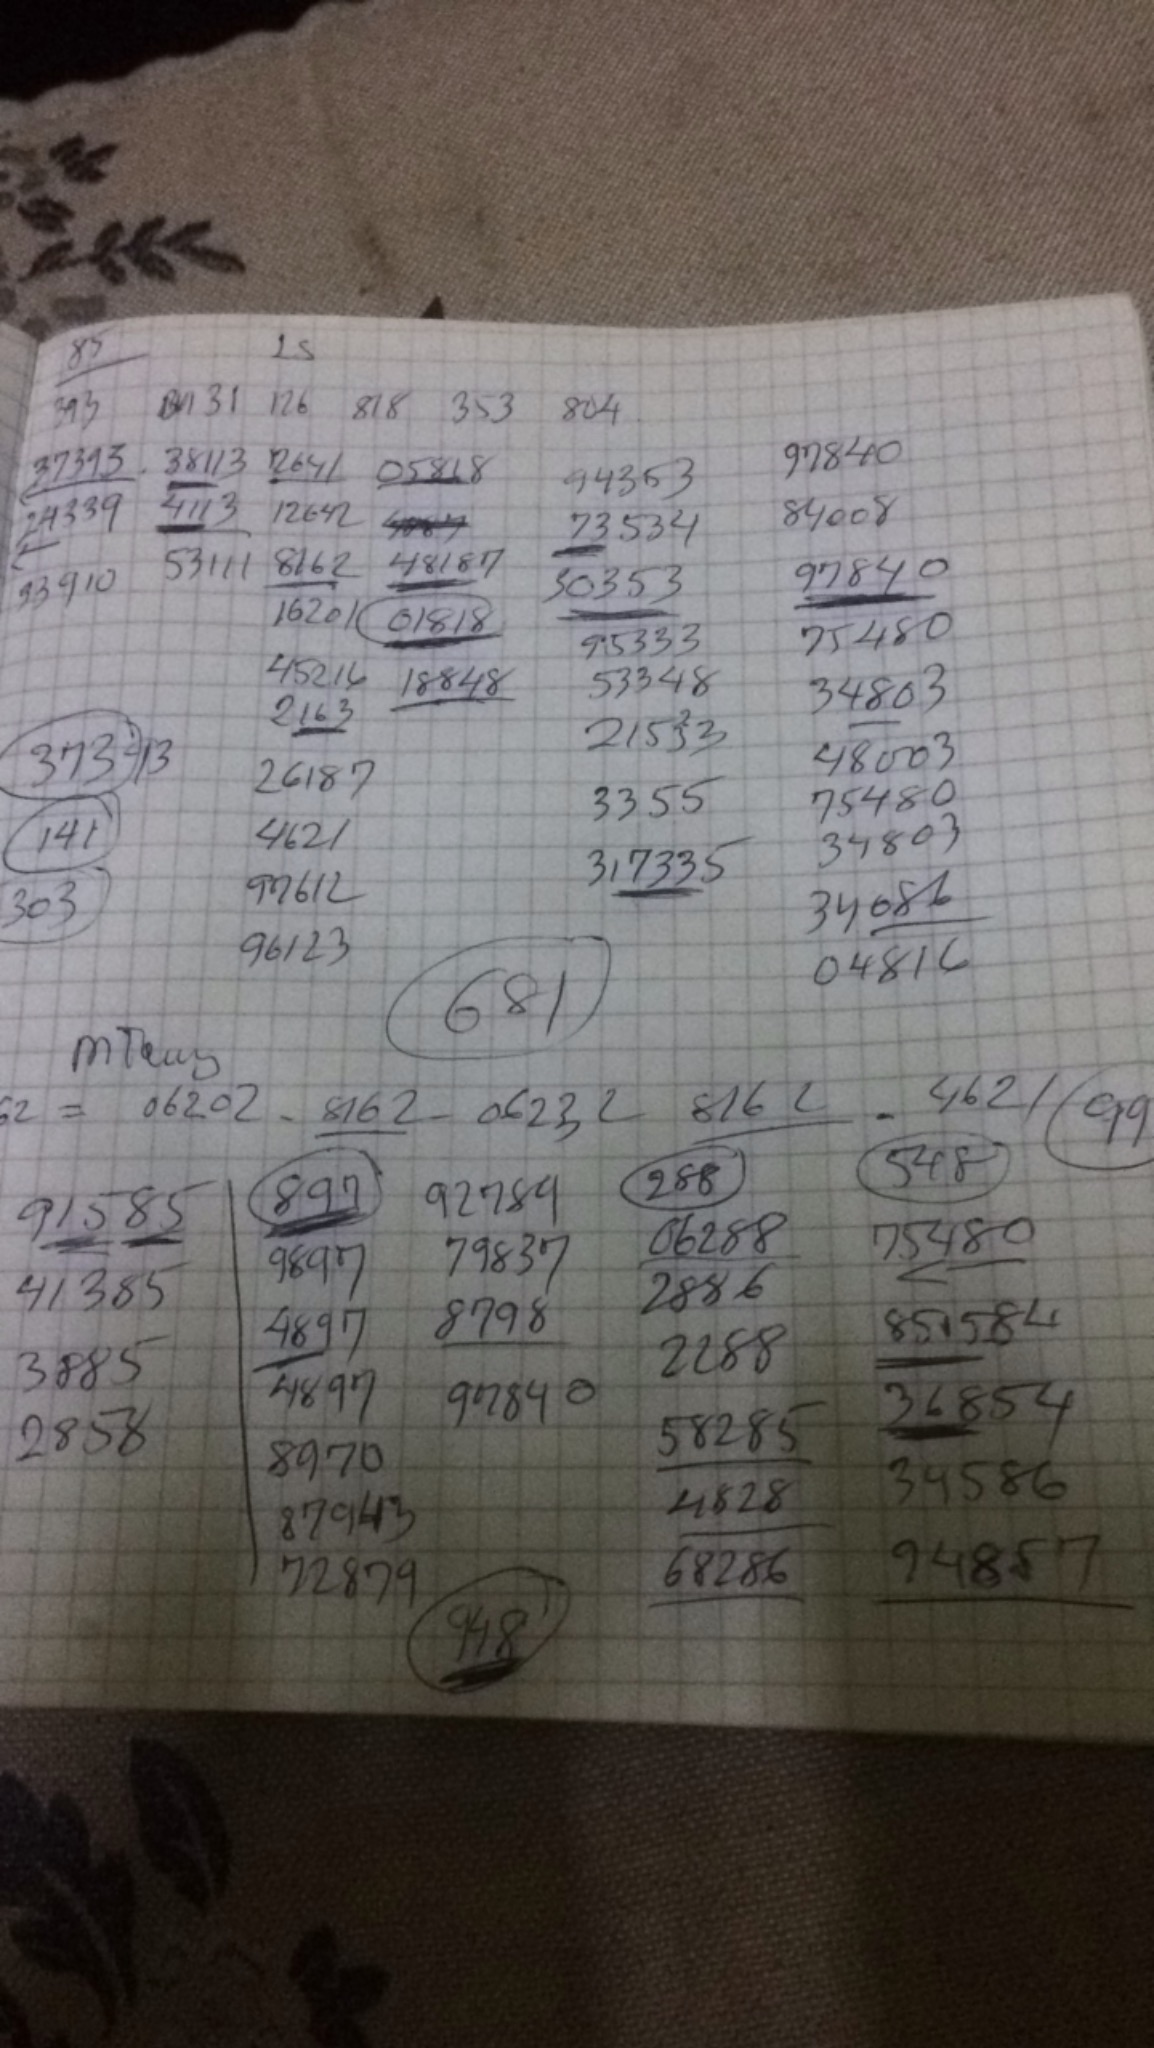 85 25
393 31 126 818 353 804
37393 - 38113 12641 05818 94353 97840
24339 4113 12642 73534 84008
93910 53111 8162 48187 30353 97840
16201 01818 95333 75480
45216 18848 53348 34803
2163 21533 48003
373 13 26187 3355 75480
141 4621 317335 34803
303 97612 34086
96123 04816
681
62 = 06202 - 8162 - 06232 8162 - 4621 99
91585 897 92789 288 548
41385 9897 79837 06288 75480
3885 4897 8798 2886 851584
2858 4897 97840 2288 36854
8970 58285 34586
87943 4828 94857
72879 68286
948